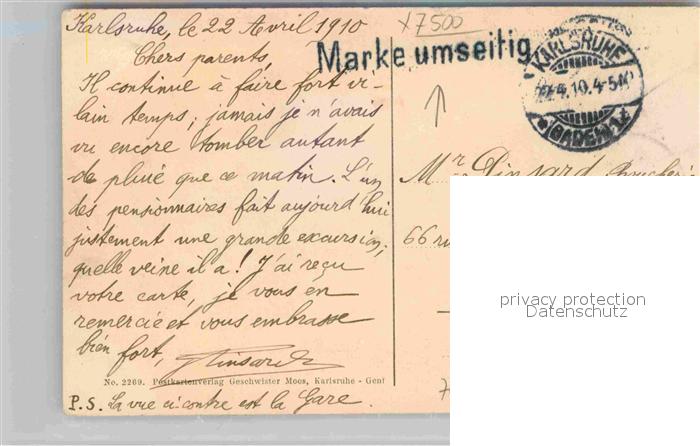 Karlsruhe, le 22 Avril 1910
X7500
Marke umseitig
KARLSRUHE
22.4.10.4-5N
(BADEN) 1
Chers parents,
Il continue à faire fort vi-
lain temps; jamais je n'avais
vu encore tomber autant
de pluie que ce matin. L'un
des pensionnaires fait aujourd'hui
justement une grande excursion,
quelle veine il a! J'ai reçu
votre carte, je vous en
remercie et vous embrasse
bien fort,
Mr
66 ru
privacy protection
Datenschutz
No. 2269. Postkartenverlag Geschwister Moos, Karlsruhe - Genf
P.S. La vue ci-contre est la Gare.